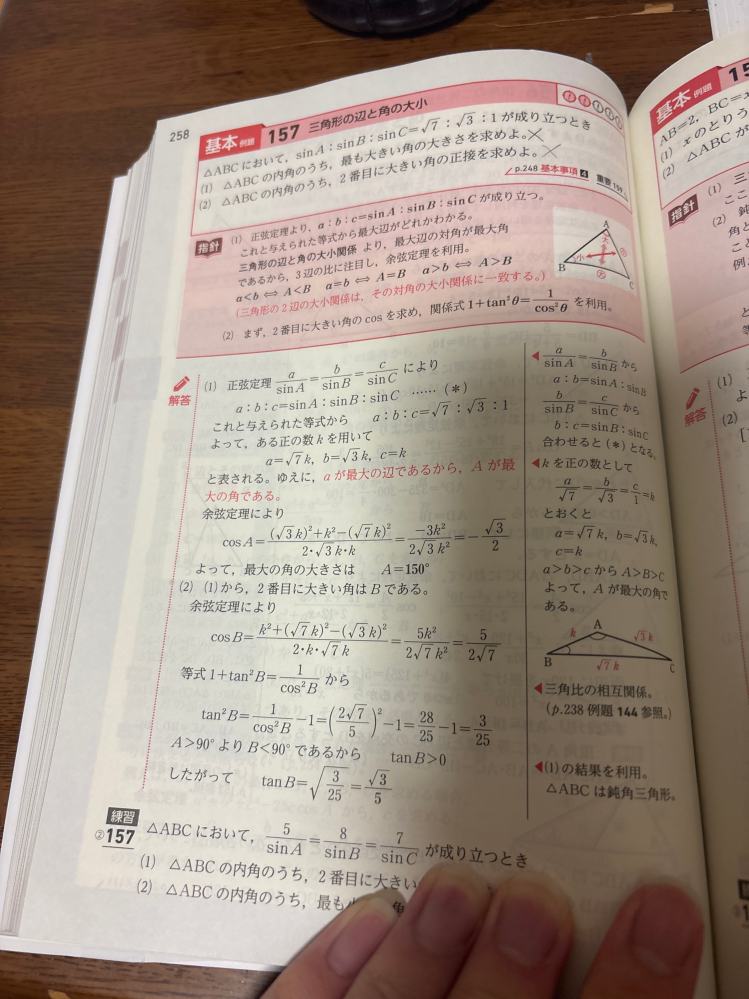 258
基本 例題 157 三角形の辺と角の大小
△ABCにおいて，sinA：sinB：sinC＝√7：√3：1が成り立つとき
(1) △ABCの内角のうち，最も大きい角の大きさを求めよ。
(2) △ABCの内角のうち，2番目に大きい角の正接を求めよ。
p.248 基本事項 4 重要 159
指針
(1) 正弦定理より，a：b：c＝sinA：sinB：sinC が成り立つ。
これと与えられた等式から最大辺がどれかわかる。
三角形の辺と角の大小関係 より，最大辺の対角が最大角
であるから，3辺の比に注目し，余弦定理を利用。
a<b ⟺ A<B a=b ⟺ A=B a>b ⟺ A>B
(三角形の2辺の大小関係は，その対角の大小関係に一致する。)
(2) まず，2番目に大きい角のcosを求め，関係式 1+tan²θ=1/cos²θ を利用。
A
大
小
B
C
大
小
解答
(1) 正弦定理 a/sinA=b/sinB=c/sinC により
a：b：c＝sinA：sinB：sinC ……(＊)
これと与えられた等式から a：b：c＝√7：√3：1
よって，ある正の数kを用いて
a=√7k，b=√3k，c=k
と表される。ゆえに，aが最大の辺であるから，Aが最
大の角である。
余弦定理により
cosA=((√3k)²+k²−(√7k)²)/(2・√3k・k)=−3k²/(2√3k²)=−√3/2
よって，最大の角の大きさは A=150°
(2) (1)から，2番目に大きい角はBである。
余弦定理により
cosB=(k²+(√7k)²−(√3k)²)/(2・k・√7k)=5k²/(2√7k²)=5/(2√7)
等式 1+tan²B=1/cos²B から
tan²B=1/cos²B−1=(2√7/5)²−1=28/25−1=3/25
A>90° より B<90° であるから tanB>0
したがって tanB=√(3/25)=√3/5
◀a/sinA=b/sinB から
a：b=sinA：sinB
b/sinB=c/sinC から
b：c=sinB：sinC
合わせると(＊)となる。
◀kを正の数として
a/√7=b/√3=c/1=k
とおくと
a=√7k，b=√3k，
c=k
a>b>cからA>B>C
よって，Aが最大の角で
ある。
A
k
√3k
B
√7k
C
◀三角比の相互関係。
(p.238 例題 144 参照。)
◀(1)の結果を利用。
△ABCは鈍角三角形。
練習
②157
△ABCにおいて，5/sinA=8/sinB=7/sinC が成り立つとき
(1) △ABCの内角のうち，2番目に大きい
(2) △ABCの内角のうち，最も
基本 例題 15
AB=2，BC=
(1) xのとりう
(2) △ABCが
指針
(1) 三
ここ
(2) 鈍
角と
こと
例
解答
(1)
よ
(2)